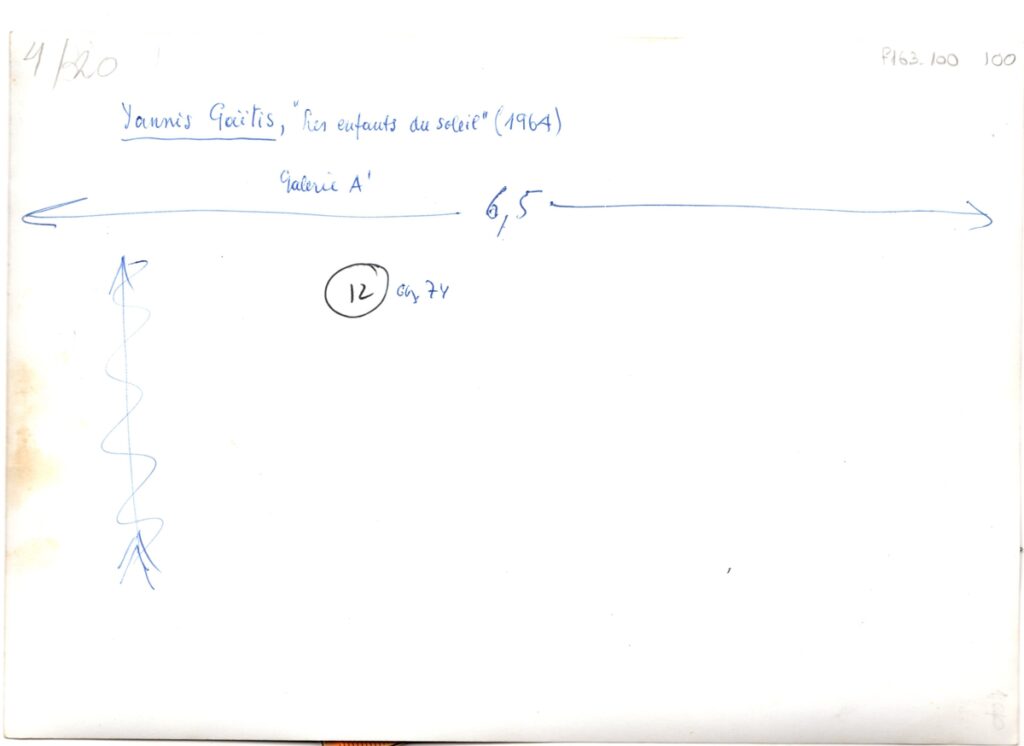 4/20
P163.100 100
Yannis Gaïtis, "Les enfants du soleil" (1964)
Galerie A'
6,5
12 74